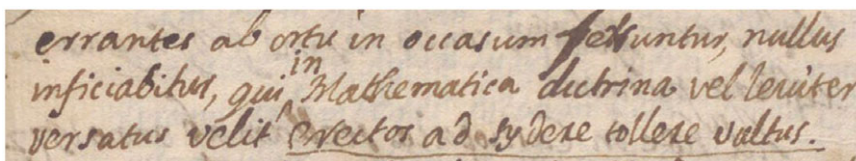 errantes ab ortu in occasum feruntur, nullus
inficiabitur, qui in Mathematica doctrina vel leviter
versatus velit erectos ad sydere tollere vultus.